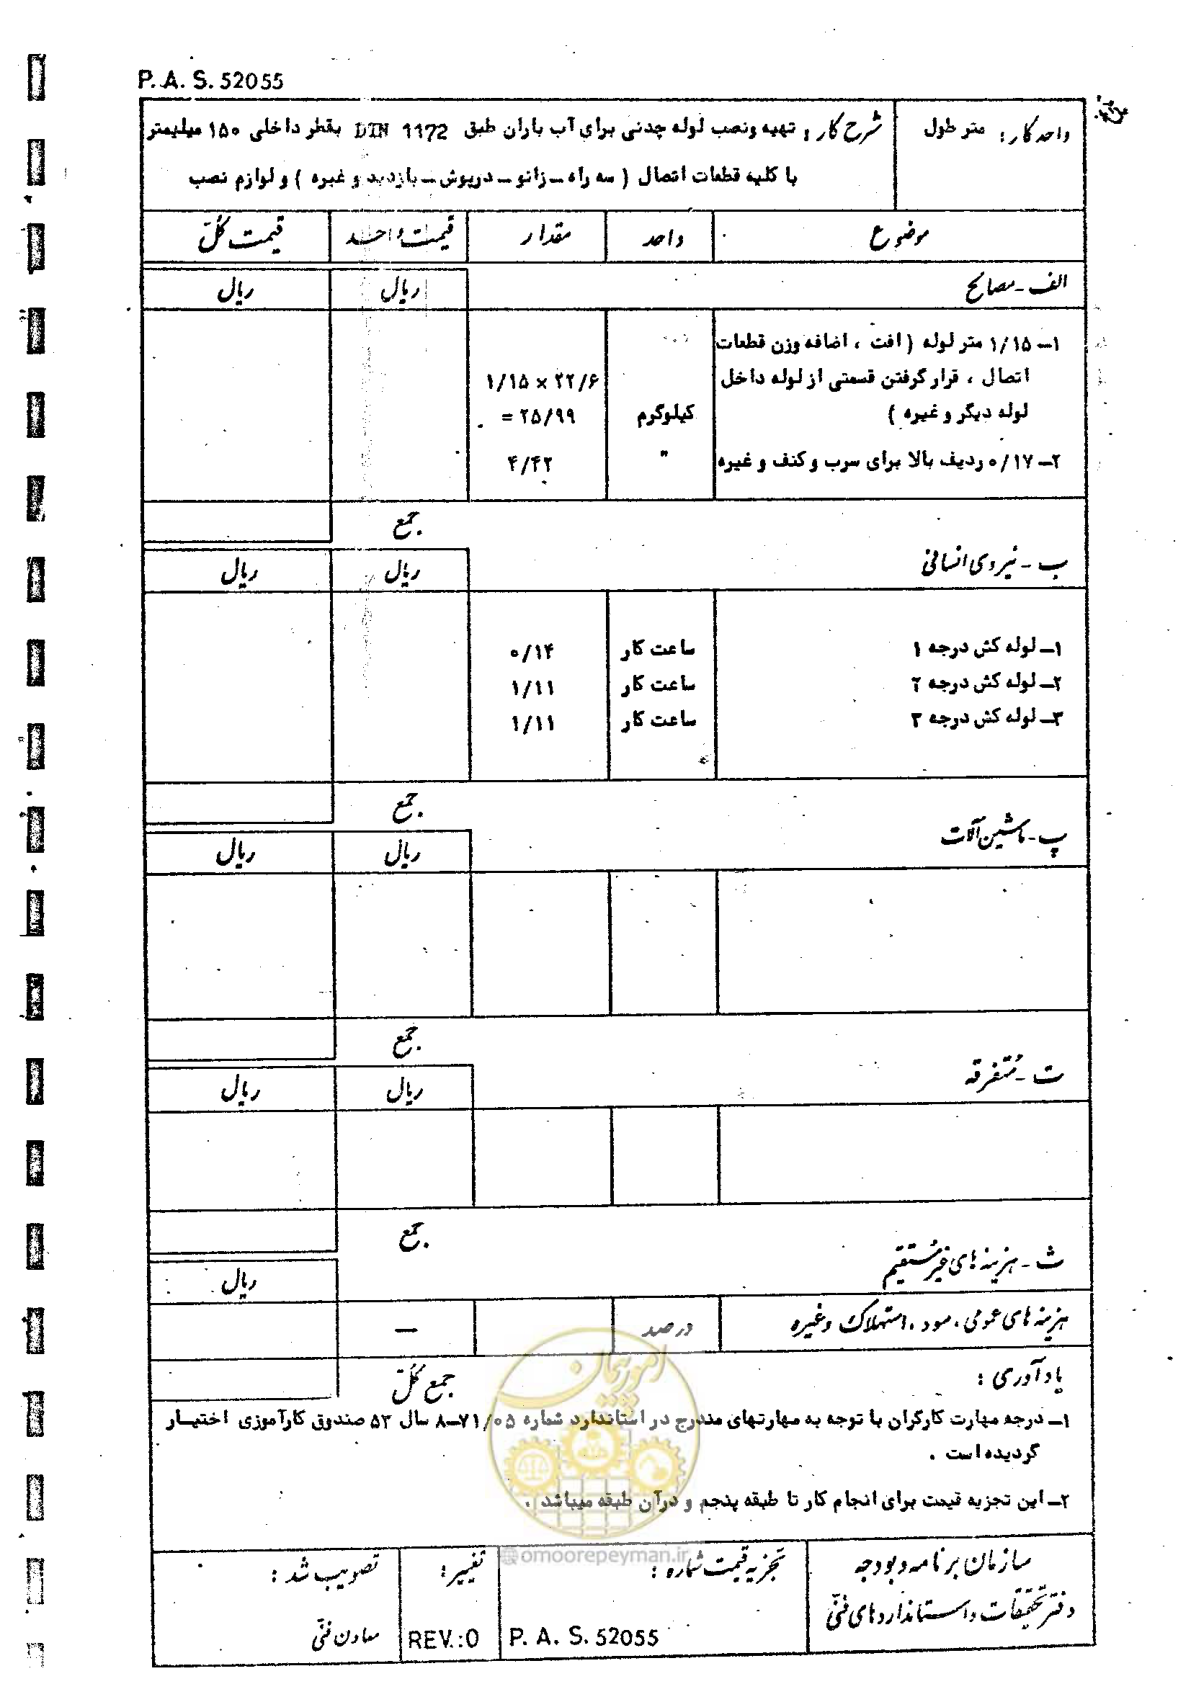 P. A. S. 52055
واحد کار: متر طول
شرح کار: تهیه ونصب لوله چدنی برای آب باران طبق DIN 1172 بقطر داخلی ۱۵۰ میلیمتر
با کلیه قطعات اتصال ( سه راه ــ زانو ــ درپوش ــ بازدید و غیره ) و لوازم نصب
موضوع واحد مقدار قیمت واحد قیمت کل
الف - مصالح ریال ریال
۱ــ ۱/۱۵ متر لوله ( افت ، اضافه وزن قطعات
اتصال ، قرار گرفتن قسمتی از لوله داخل ۱/۱۵ × ۲۲/۶
لوله دیگر و غیره ) کیلوگرم = ۲۵/۹۹
۲ــ ۰/۱۷ ردیف بالا برای سرب و کنف و غیره " ۴/۴۲
جمع
ب - نیروی انسانی ریال ریال
۱ــ لوله کش درجه ۱ ساعت کار ۰/۱۴
۲ــ لوله کش درجه ۲ ساعت کار ۱/۱۱
۳ــ لوله کش درجه ۳ ساعت کار ۱/۱۱
جمع
پ - ماشین آلات ریال ریال
جمع
ت - متفرقه ریال ریال
جمع
ث - هزینه های غیر مستقیم ریال
هزینه های عمومی ، سود ، استهلاک وغیره درصد —
یادآوری : جمع کل
۱ــ درجه مهارت کارگران با توجه به مهارتهای مندرج در استاندارد شماره ۷۱/۰۵ــ۸ سال ۵۳ صندوق کارآموزی اختیار
گردیده است .
۲ــ این تجزیه قیمت برای انجام کار تا طبقه پنجم و درآن طبقه میباشد .
امور پیمان
@omoorepeyman.ir
سازمان برنامه و بودجه
دفتر تحقیقات و استانداردهای فنی
تجزیه قیمت شماره :
P. A. S. 52055
تغییر:
REV.:0
تصویب شد :
معاون فنی